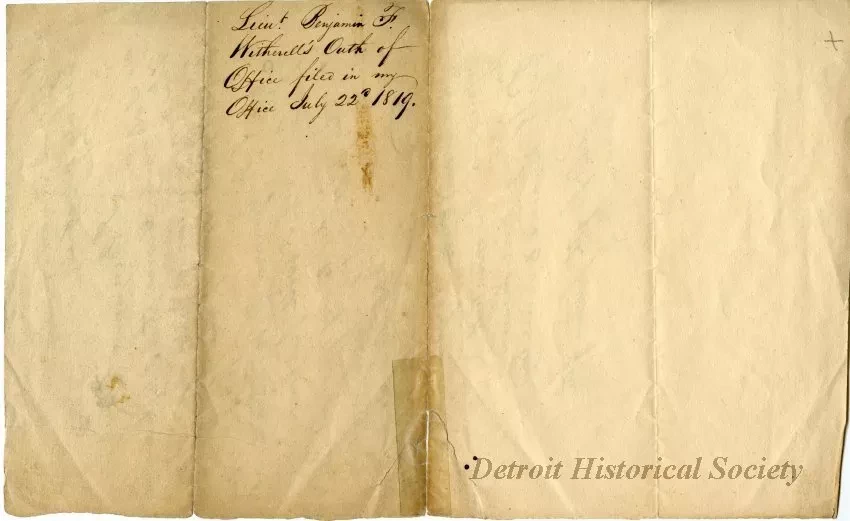 Lieut. Benjamin F.
Witherell's Oath of
Office filed in my
Office July 22d 1819.
Detroit Historical Society